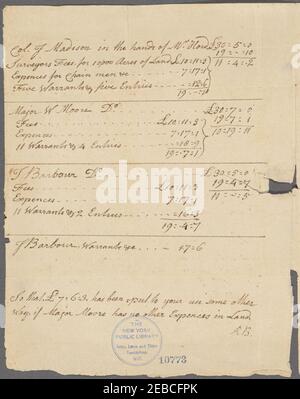 Col. J Madison in the hands of Mr Hord £30=5=0
Surveyors Fees for 10000 Acres of Land £10=11=3 19=-=10
Expences for Chain men &c 7=17=1 11=4=2
Five Warrants & five Entries - 12=6
19=-=10
Major W. Moore Do. £30=7=0
Fees £10=11=3 19=7=1
Expences 7=17=1 10=19=11
11 Warrants & 4 Entries - 18=9
19=7=1
J Barbour Do £30=5=0
Fees £10=11=3 19=4=7
Expences 7=17=1 11=-=5
11 Warrants & 2 Entries - 16=3
19=4=7
J Barbour Warrants &c - 17=6
So that £7=6=3 has been apply'd to your use some other
way if Major Moore has no other Expences in Land
AB.
THE
NEW YORK
PUBLIC LIBRARY
Astor, Lenox and Tilden
Foundations
10773
alamy
Image ID: 2EBCFPK
www.alamy.com